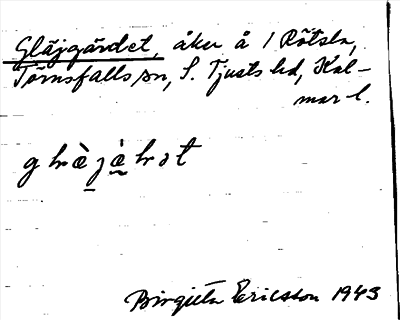 Gläjgärdet, åker å 1 Rötsla,
Törnsfalls sn, S. Tjusts hd, Kal-
mar l.
Birgitta Ericsson 1943